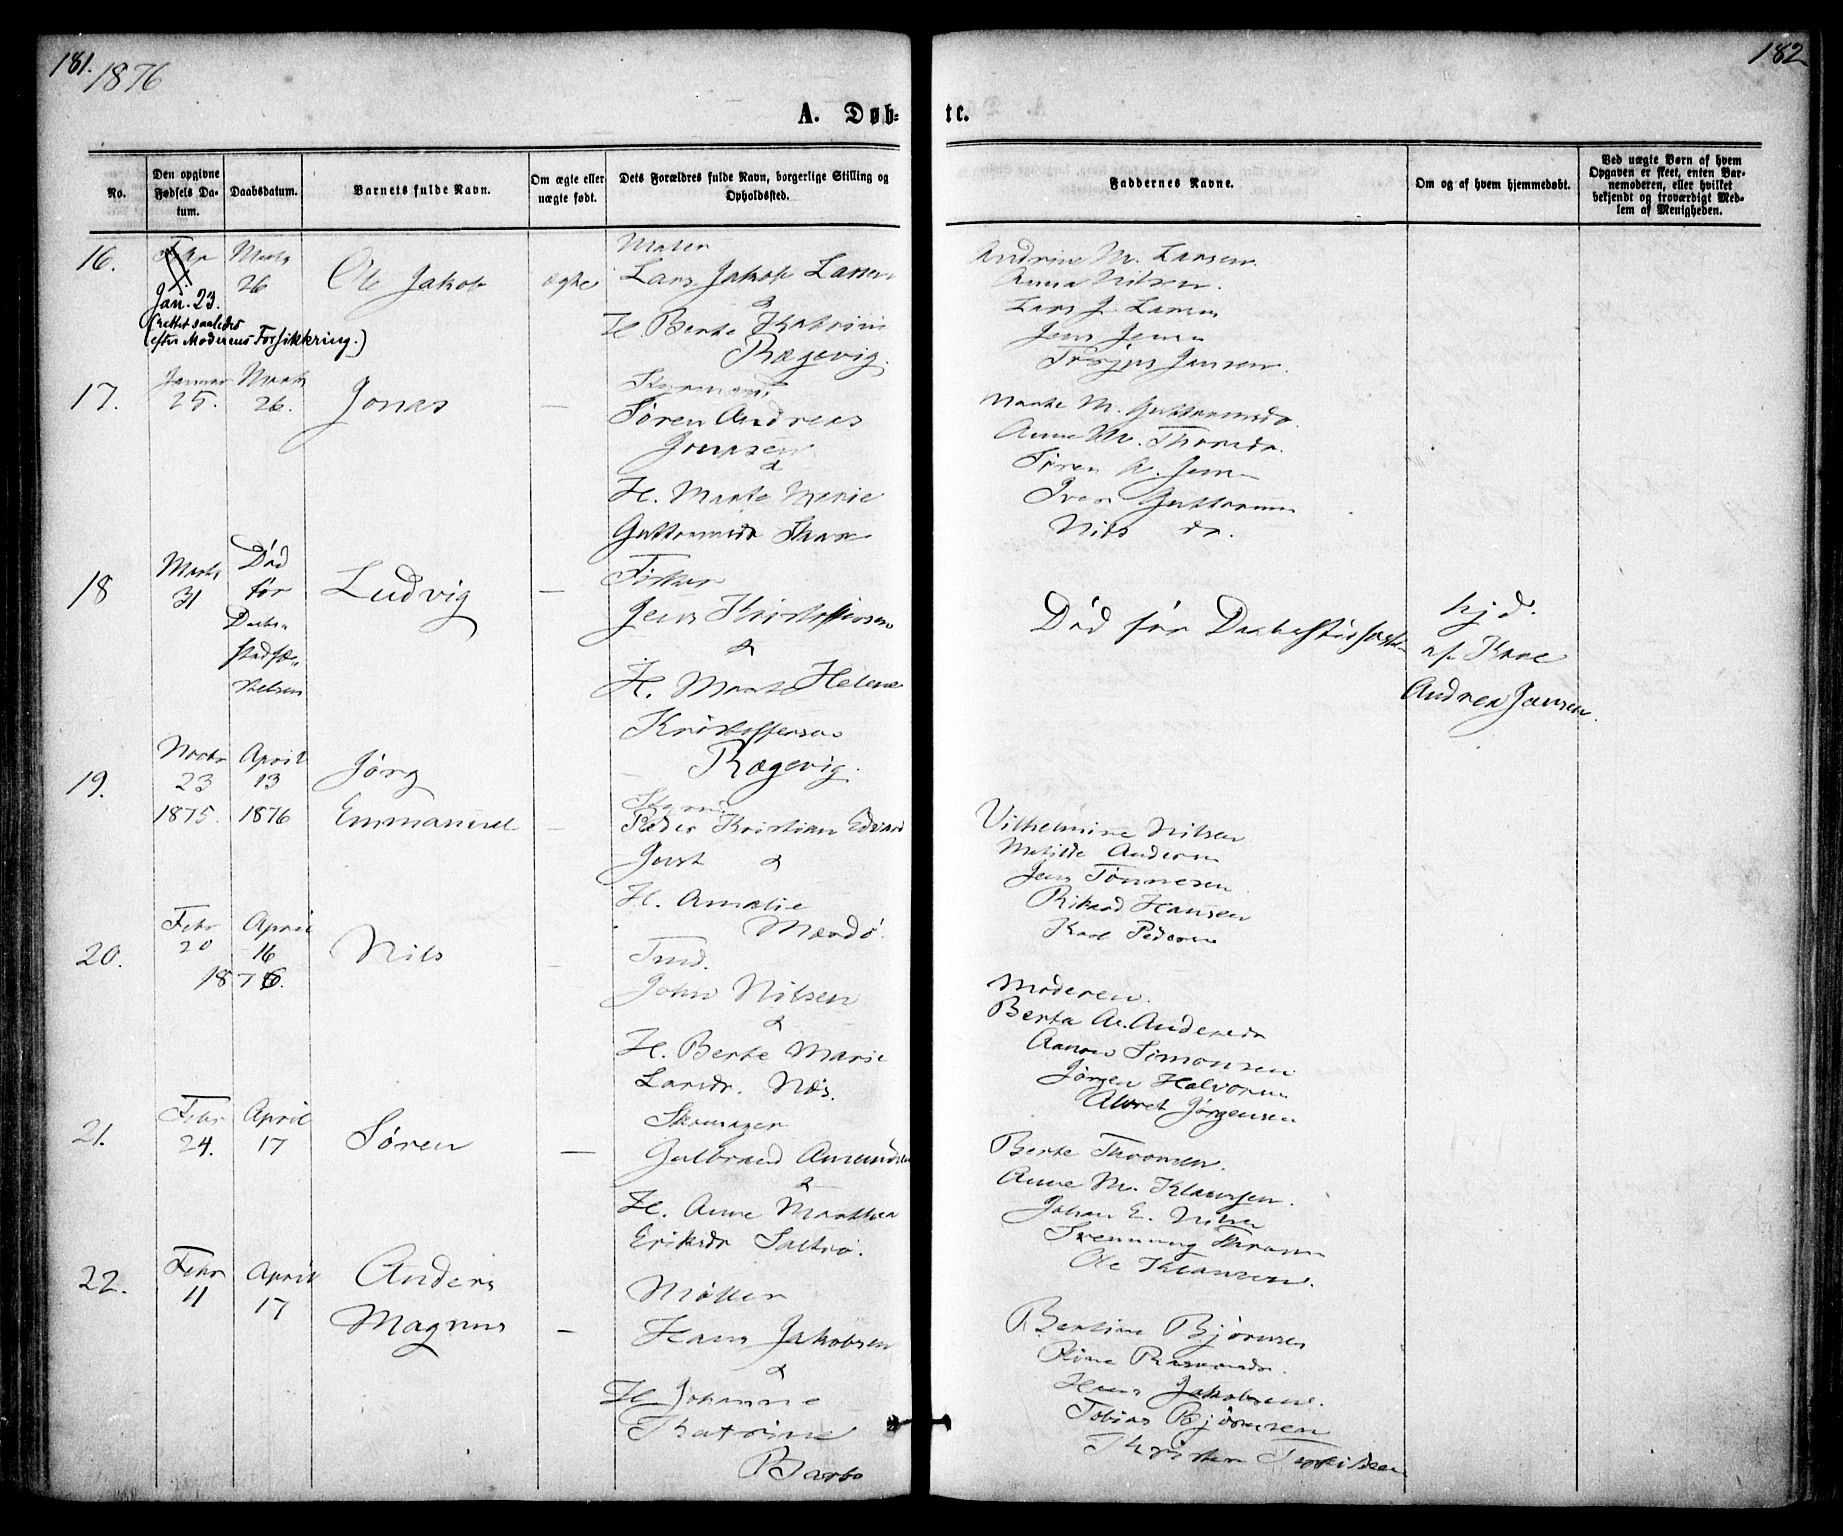 181.
1876
182
A. Døb-
te.
No.
Den opgivne Fødsels Da-
tum.
Daabsdatum.
Barnets fulde Navn.
Om ægte eller
uægte født.
Dets Forældres fulde Navn, borgerlige Stilling og
Opholdssted.
Faddernes Navne.
Om og af hvem hjemmedøbt.
Ved uægte Børn af hvem
Opgaven er skeet, enten Bar-
nemoderen, eller hvilket
bekjendt og troværdigt Med-
lem af Menigheden.
16.
Febr
Jan. 23.
(rettet saaledes
efter Moderens Forsikkring.)
Marts
26
Ole Jakob
ægte
Lars Jakob Larsen
&
H. Berte Katrine
Rægevig.
Andrine M. Larsen.
Anna Nilsen.
Lars J. Larsen
Jens Jensen
Jansen.
17.
Januar
25.
Marts
26.
Jonas
—
Søren Andreas
Jensen
&
H. Marte Marie
Guttormsdr
Marte M. Guttormsdr.
Anne M. Thomsdr.
Søren A. Jensen
Iver Guttormsen
Nils do.
18
Marts
31
Død
før
Daabs-
stadfæ-
stelsen
Ludvig
—
Fisker
Jens Kristoffersen
&
H. Marte Helene
Kristoffersen
Rægevig.
Død før Daabsstadfæstelsen
hjd.
af
Andrea Jansen.
19.
Novbr
23
1875.
April
13
1876
Jørg
Emmanuel
—
Styrm.
Peder Kristian Edvard
Just &
H. Amalie
Mærdø.
Vilhelmine Nilsen
Matilde Andersen
Jens Tønnesen
Rikard Hansen
Karl Pedersen
20.
Febr
20
April
16
1876.
Nils
—
Tmd.
John Nilsen
&
H. Berte Marie
Larsdr. Næs.
Moderen.
Berta A. Andersdr
Aanon Simonsen
Jørgen Halvorsen
Alvret Jørgensen
21.
Febr
24.
April
17
Søren
—
Skomager
Gulbrand Amundsen
&
H. Anne Marthea
Eriksdr Saltrø.
Berte Thronsen.
Anne M. Klausen.
Johan E. Nilsen
Svenning Thronsen
Ole Klausen.
22.
Febr
11
April
17
Anders
Magnus
—
Møller
Hans Jakobsen
&
H. Johanne
Katrine
Barbo
Bertine Bjørnsen
Hans Jakobsen.
Tobias Bjørnsen
Kristen Terkildsen